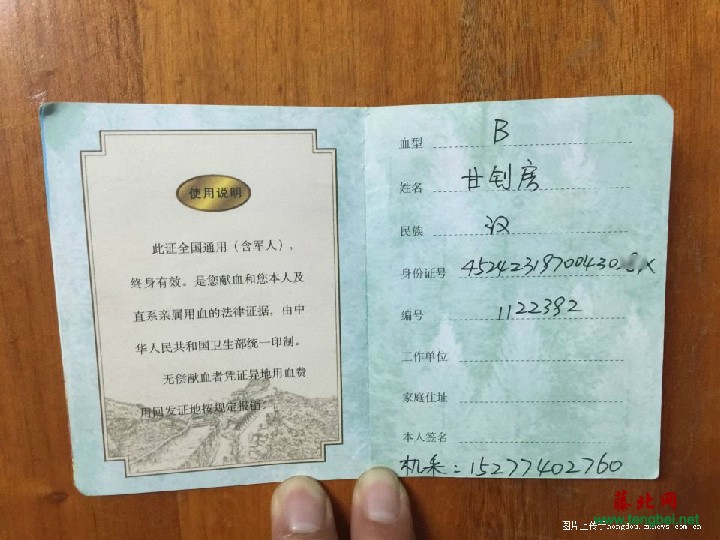 使用说明
此证全国通用（含军人），
终身有效。是您献血和您本人及
直系亲属用血的法律证据，由中
华人民共和国卫生部统一印制。
无偿献血者凭证异地用血费
用回发证地按规定报销。
血型 B
姓名 甘钊房
民族 汉
身份证号
编号 1122392
工作单位
家庭住址
本人签名
机采：15277402760
藤北网
www.tengbei.net